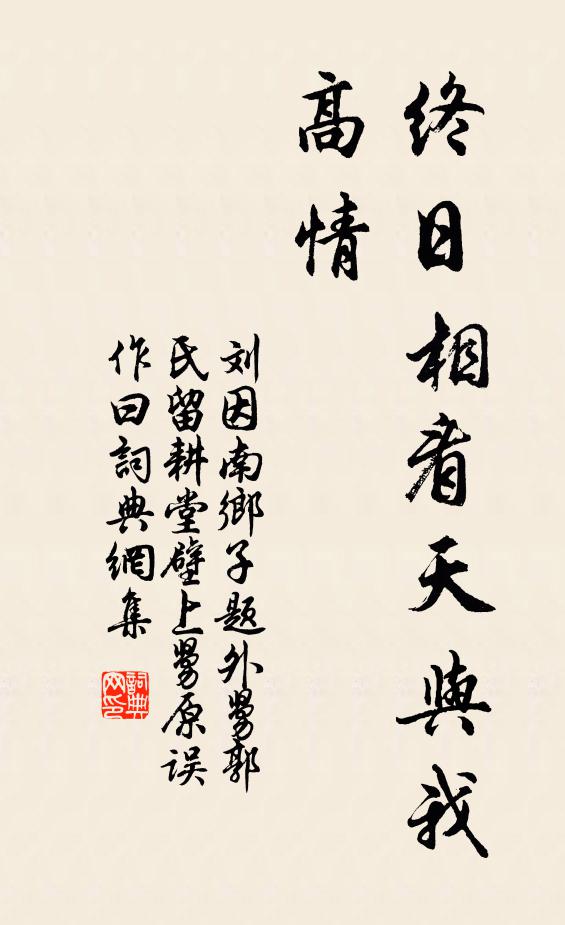 終日相看天與我
高情
刘因南鄉子題外舅郭
氏留耕堂壁上舅原误
作曰詞典網集
詞典
网印